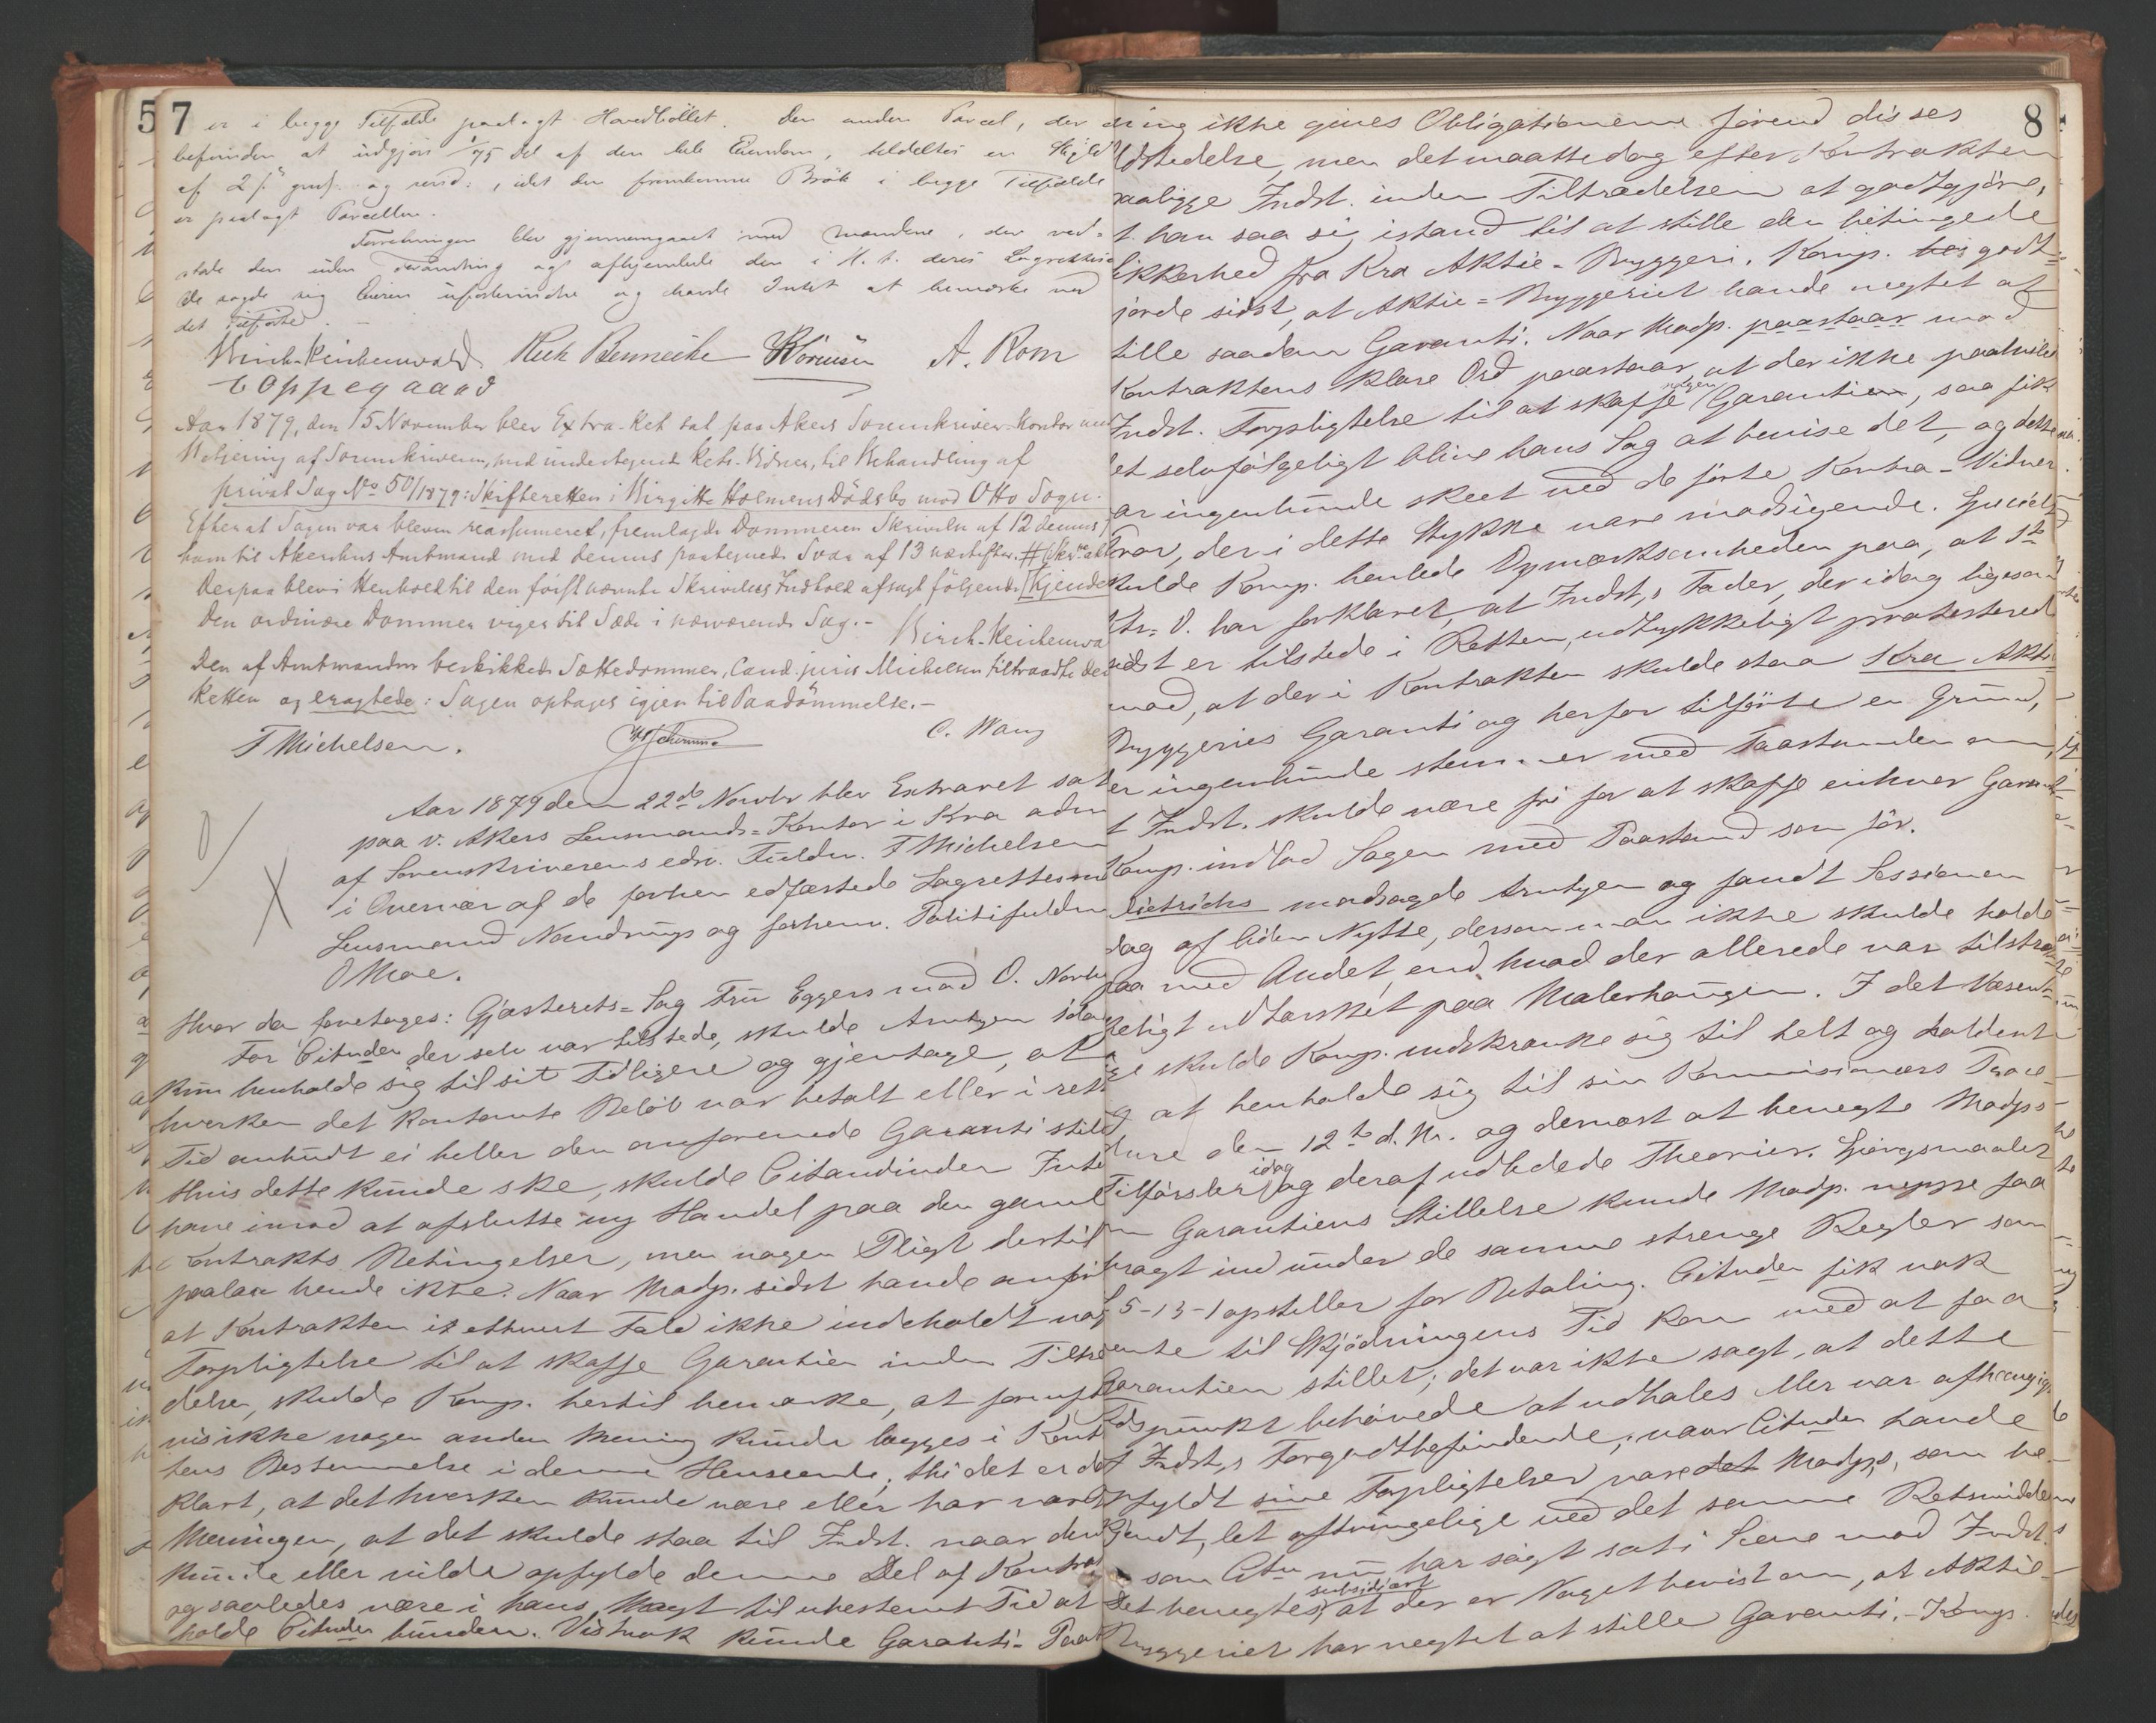 57
er i begge Tilfælde paalagt Hovedbøllet. Den anden Parcel, der
befindes at udgjøre 1/75 Del af den hele Eiendom, tildeltes en Skyld
af 2 β og : , idet den fremkomne Brøk i begge Tilfælde
er paalagt Parcellen.
Forretningen blev gjennemgaaet med Mændene, der ved-
stode den uden Forandring og afhjemlede den i H. t. deres Lagrettesed
de sagde sig Eieren ubeslægtede og havde Intet at bemærke ved
det Tilførte. —
Birch-Reichenwald A. Rom
C Oppegaard
Aar 1879, den 15 November blev Extra-Ret sat paa Akers Sorenskriver-Kontor under
Betjening af Sorenskriveren, med undertegnede Rets-Vidner, til Behandling af
privat Sag No 50/1879: Skifteretten i Birgitte Holmens Dødsbo mod Otto Sogn.
Efter at Sagen var bleven reassumeret, fremlagde Dommeren Skrivelse af 12 dennes fra
ham til Akershus Amtmand med dennes paategnede Svar af 13 næstefter. #
Derpaa blev i Henhold til den først nævnte Skrivelses Indhold afsagt følgende Kjende
Den ordinære Dommer viger sit Sæde i nærværende Sag. —
Birch-Reichenwa
Den af Amtmanden beskikkede Sættedommer, Cand. juris Michelsen tiltraadte der
Retten og eragtede: Sagen optages igjen til Paadømmelse. —
F Michelsen. C. Wang
Aar 1879 den 22de Novbr blev Extraret sat
paa v. Akers Lensmands-Kontor i Kra adm
af Sorenskriverens edsv. Fuldm. F Michelsen
i Overvær af de forhen edfæstede Lagrettesm
Lensmand Nandrup og forhenv. Politifuldm
O Moe.
Hvor da foretoges: Gjæsterets-Sag Fru Eggers mod O. Norby
For Citndn der selv var tilstede, skulde Arntzen idag
kun henholde sig til sit Tidligere og gjentage, at
hverken det kontante Beløb var betalt eller i rett
Tid anbudt ei heller den omforenede Garanti stille
Hvis dette kunde ske, skulde Citandinden Intet
have imod at afslutte ny Handel paa den gamle
Kontrakts Betingelser, men nogen Pligt dertil
paalaa hende ikke. Naar Modp. sidst havde anført
at Kontrakten i ethvert Fald ikke indeholdt nog
Forpligtelse til at skaffe Garantien inden Tiltræ
delsen, skulde Komp. hertil bemærke, at fornuft
vis ikke nogen anden Mening kunde lægges i Kont
tens Bestemmelse i denne Henseende; thi det er da
klart, at det hverken kunde være eller har været
Meningen, at det skulde staa til Indst. naar den
kunde eller vilde opfylde denne Del af Kontra
og saaledes være i hans Magt til ubestemt Tid at
holde Citndn bunden. Vistnok kunde Garanti-Paat
8
ning ikke gives Obligationerne førend disses
Udstedelse, men det maatte dog efter Kontrakten
paaligge Indst. inden Tiltrædelsen at godtgjøre,
t. han saa sig istand til at stille den betingede
Sikkerhed fra Kra Aktie-Bryggeri. Komp. godt-
jorde sidst, at Aktie-Bryggeriet havde negtet at
stille saadan Garanti. Naar Modp. paastaar mod
Kontraktens klare Ord paastaar, at der ikke paahviled
Indst. Forpligtelse til at skaffe nogen Garantien, saa fik
et selvfølgeligt blive hans Sag at bevise det, og dette
ar ingenlunde skeet ved de førte Kontra-Vidner.
Svar, der i dette Stykke vare modsigende. Specielt
skulde Komp. henlede Opmærksomheden paa, at 1ste
Ktr-V. har forklaret, at Indst,s Fader, der idag ligesom
sidst er tilstede i Retten, udtrykkeligt protesterede
mod, at der i Kontrakten skulde staa Kra Akti
Bryggeries Garanti og herfor tilførte en Grund,
er ingenlunde stemmer med Paastanden om,
t Indst. skulde være fri for at skaffe enhver Garanti
Komp. indlod Sagen med Paastand som før.
Dietrichs modsagde Arntzen og fandt Sessionen
dag af liden Nytte, dersom man ikke skulde holde
paa med Andet, end hvad der allerede var tilstræk
keligt udtærsket paa Materhaugen. I det Væsent
ge skulde Komp. indskrænke sig til helt og holdent
g at henholde sig til sin Kommissionærs Proce-
dure den 12te d. M. og dernæst at benegte Modps
Tilførsler idag og deraf udledede Theorier. Spørgsmaalet
m Garantiens Stillelse kunde Modp. neppe faa
bragt ind under de samme strenge Regler som
L 5-13-1 opstiller for Betaling. Citndn fik nok
vente til Skjødningens Tid kom med at faa
Garantien stillet; det var ikke sagt, at dette
Tidspunkt behøvede at udhales eller var afhængigt
f Indst,s Forgodtbefindende; naar Citndn havde
pfyldt sine Forpligtelser, vare det Modp,s, som be-
kjendt, let aftvingelige ved det samme Retsmiddel
som Citn nu har søgt sat i Scene mod Indst.
Det benegtes subsidiært at der er Noget bevist om, at Aktie-
Bryggeriet har negtet at stille Garanti. — Komp.